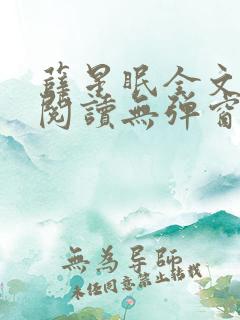 薛星眠全文
閱讀無彈窗
無為导師
未任同意禁止转载